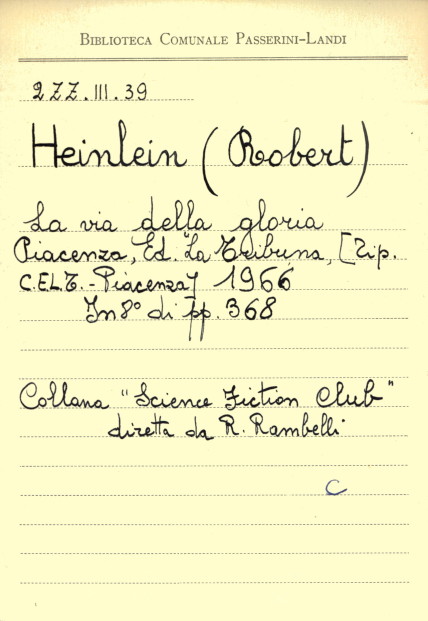 BIBLIOTECA COMUNALE PASSERINI-LANDI
2ZZ.III.39
Heinlein (Robert)
La via della gloria
Piacenza, Ed. La Tribuna, [Tip.
C.E.L.T. - Piacenza] 1966
In 8° di pp. 368
Collana "Science Fiction Club"
diretta da R. Rambelli
C